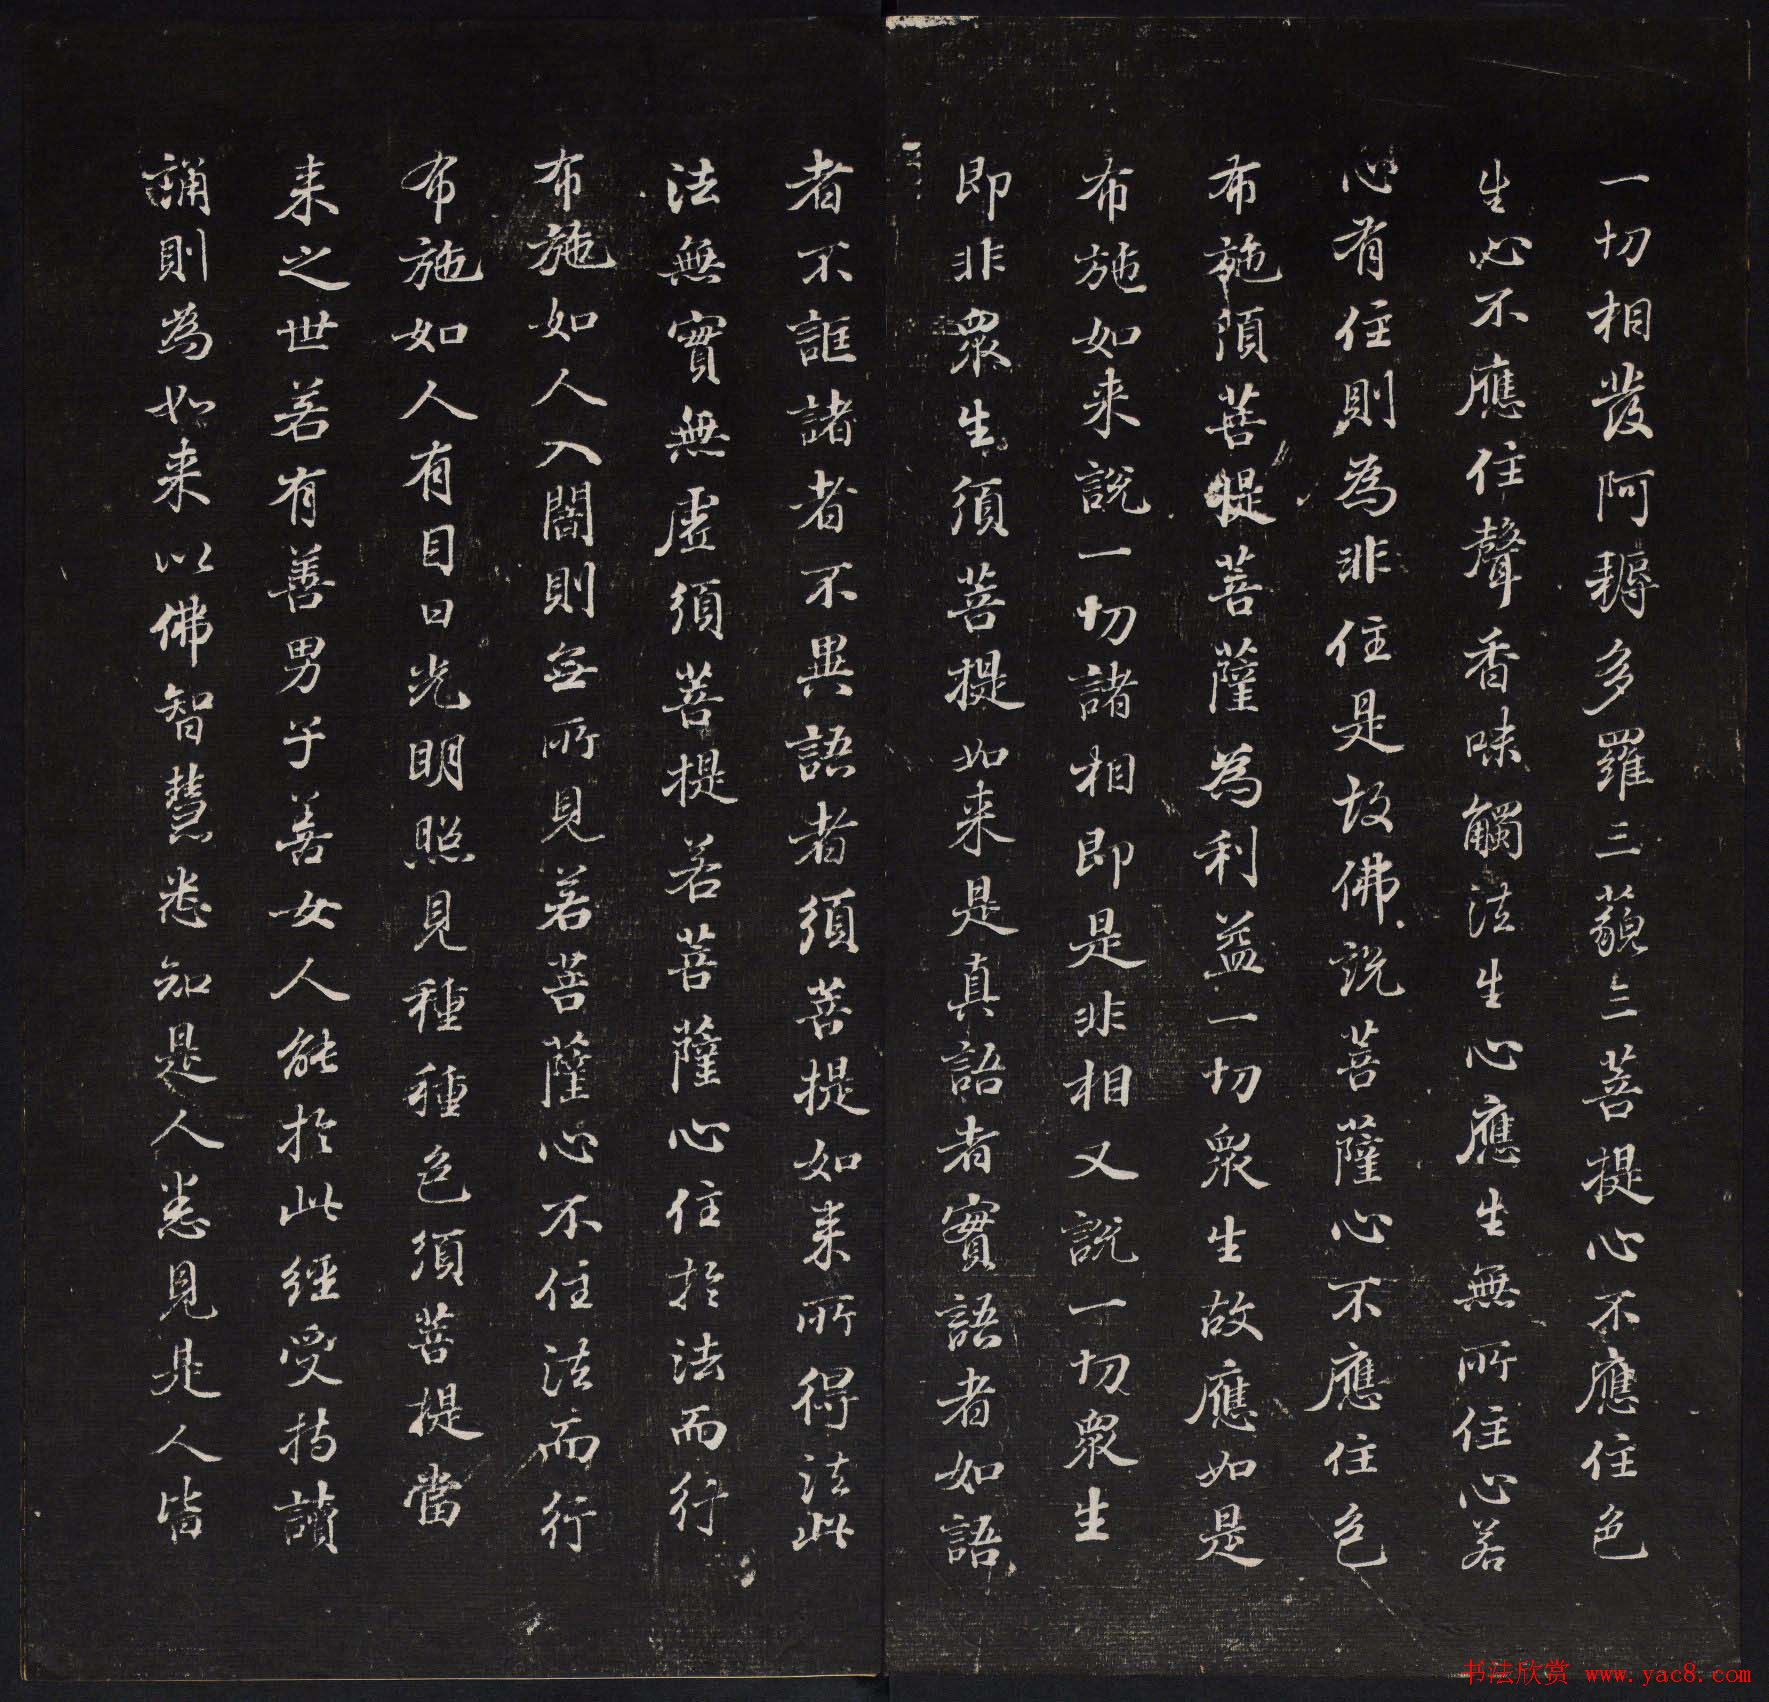 一切相發阿耨多羅三藐三菩提心不應住色
生心不應住聲香味觸法生心應生無所住心若
心有住則為非住是故佛說菩薩心不應住色
布施須菩提菩薩為利益一切眾生故應如是
布施如来說一切諸相即是非相又說一切眾生
即非眾生須菩提如来是真語者實語者如語
者不誑諸者不異語者須菩提如来所得法此
法無實無虛須菩提若菩薩心住於法而行
布施如人入闇則無所見若菩薩心不住法而行
布施如人有目日光明照見種種色須菩提當
来之世若有善男子善女人能於此經受持讀
誦則為如来以佛智慧悉知是人悉見是人皆
书法欣赏 www.yac8.com